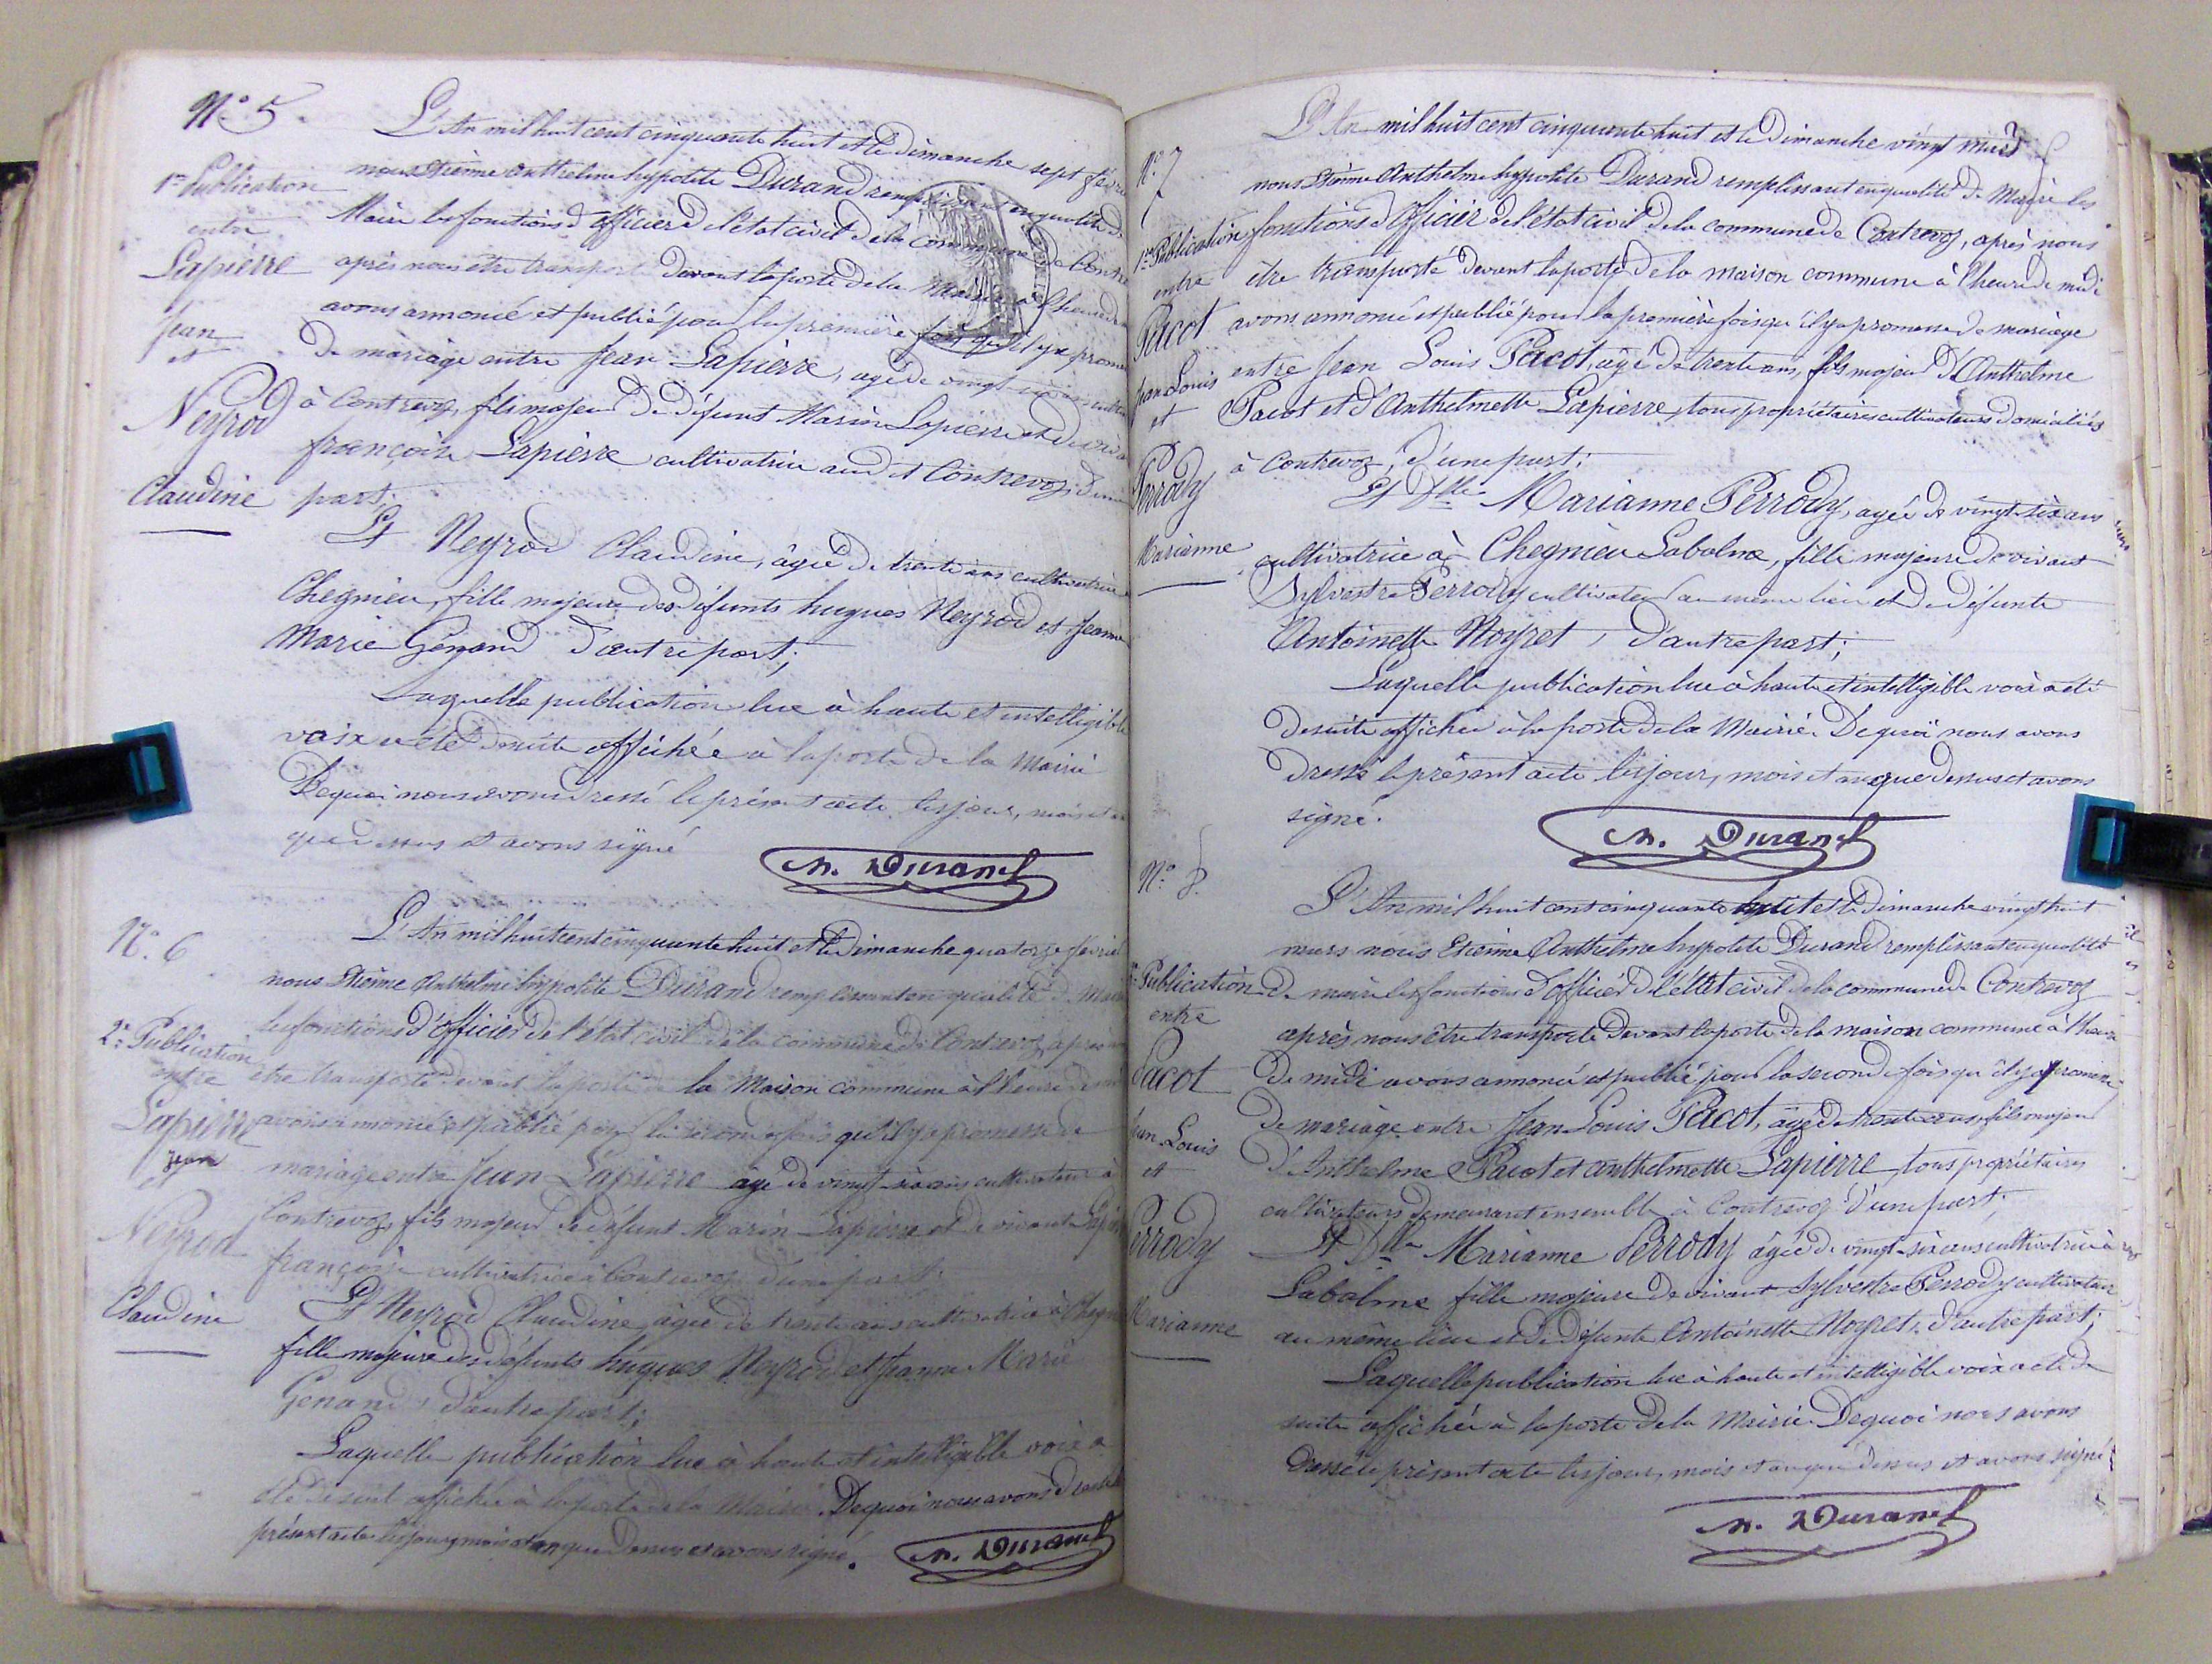 N° 5.
1re Publication
entre
Lapierre
Jean
et
Neyrod
Claudine
L'An mil huit cent cinquante huit et le dimanche sept février
nous Etienne Anthelme hypolite Durand remplissant en qualité de
Maire les fonctions d'officier de l'état civil de la commune de Contre
après nous être transporté devant la porte de la Mairie à l'heure de
avons annoncé et publié pour la première fois qu'il y a prome
de mariage entre Jean Lapierre, agé de vingt-six ans cultiva
à Contrevoz, fils majeur de défunt Marin Lapierre et de viva
françoise Lapierre cultivatrice aud t Contrevoz, d'une
part;
Et Neyrod Claudine, âgée de trente ans cultivatrice
Chegnieu, fille majeure des défunts hugues Neyrod et Jeanne
Marie Génand d'autre part;
Laquelle publication lue à haute et intelligible
voix a été de suite affichée à la porte de la Mairie
De quoi nous avons dressé le présent acte les jour, mois et an
que dessus et avons signé
N. Durand
N° 6
2e Publication
entre
Lapierre
Jean
Neyrod
Claudine
L'An mil huit cent cinquante huit et le dimanche quatorze février
nous Etienne Anthelme hypolite Durand remplissant en qualité de Maire
les fonctions d'officier de l'état civil de la commune de Contrevoz, après nous
être transporté devant la porte de la Maison commune à l'heure de mi
avons annoncé et publié pour la seconde fois qu'il y a promesse de
mariage entre Jean Lapierre âgé de vingt-six ans cultivateur à
Contrevoz, fils majeur de défunt Marin Lapierre et de vivante Lapierre
françoise cultivatrice à Contrevoz d'une part.
Et Neyrod Claudine, âgée de trente ans cultivatrice à Chegnieu
fille majeure des défunts hugues Neyrod et Jeanne Marie
Génand, d'autre part;
Laquelle publication lue à haute et intelligible voix a
été de suite affichée à la porte de la Mairie. De quoi nous avons dressé le
présent acte les jour, mois et an que dessus et avons signé.
N. Durand
N° 7
1re Publication
entre
Pacot
Jean Louis
et
Perrody
Marianne
L'An mil huit cent cinquante huit et le Dimanche vingt mars
nous Etienne Anthelme hypolite Durand remplissant en qualité de Maire les
fonctions d'officier de l'état civil de la commune de Contrevoz, après nous
être transporté devant la porte de la maison commune à l'heure de midi
avons annoncé et publié pour la première fois qu'il y a promesse de mariage
entre Jean Louis Pacot, agé de trente ans, fils majeur d'Anthelme
Pacot et d'Anthelmette Lapierre, tous propriétaires cultivateurs domiciliés
à Contrevoz, d'une part;
Et Dlle Marianne Perrody, agée de vingt-six ans
cultivatrice à Chegnieu Labalme, fille majeure de vivant
Sylvestre Perrody cultivateur au même lieu et de défunte
Antoinette Noyret, d'autre part;
Laquelle publication lue à haute et intelligible voix a été
de suite affichée à la porte de la Mairie. De quoi nous avons
dressé le présent acte les jour, mois et an que dessus et avons
signé.
N. Durand
N° 8.
Publication
entre
Pacot
Jean Louis
et
Perrody
Marianne
L'An mil huit cent cinquante huit et le dimanche vingt huit
mars nous Etienne Anthelme hypolite Durand remplissant en qualité
de maire les fonctions d'officier de l'état civil de la commune de Contrevoz
après nous être transporté devant la porte de la maison commune à l'heure
de midi avons annoncé et publié pour la seconde fois qu'il y a promesse
de mariage entre Jean Louis Pacot, âgé de trente ans, fils majeur
d'Anthelme Pacot et Anthelmette Lapierre, tous propriétaires
cultivateurs demeurant ensemble à Contrevoz d'une part;
Et Dlle Marianne Perrody âgée de vingt-six ans cultivatrice à
Labalme fille majeure de vivant Sylvestre Perrody cultivateur
au même lieu et de défunte Antoinette Noyret, d'autre part;
Laquelle publication lue à haute et intelligible voix a été de
suite affichée à la porte de la Mairie De quoi nous avons
dressé le présent acte les jour, mois et an que dessus et avons signé
N. Durand